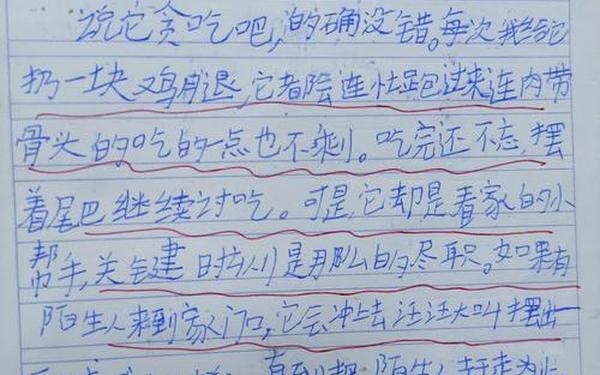 说它贪吃吧,的确没错。每次我给它
扔一块鸡腿,它都会连忙跑过来连肉带
骨头的吃的一点也不剩。吃完还不忘,摆
着尾巴继续讨吃。可是,它却是看家的小
帮手,关键时刻是那么的尽职。如果有
陌生人来到家门口,它会冲上去汪汪大叫摆出一
直到把陌生人赶走为止